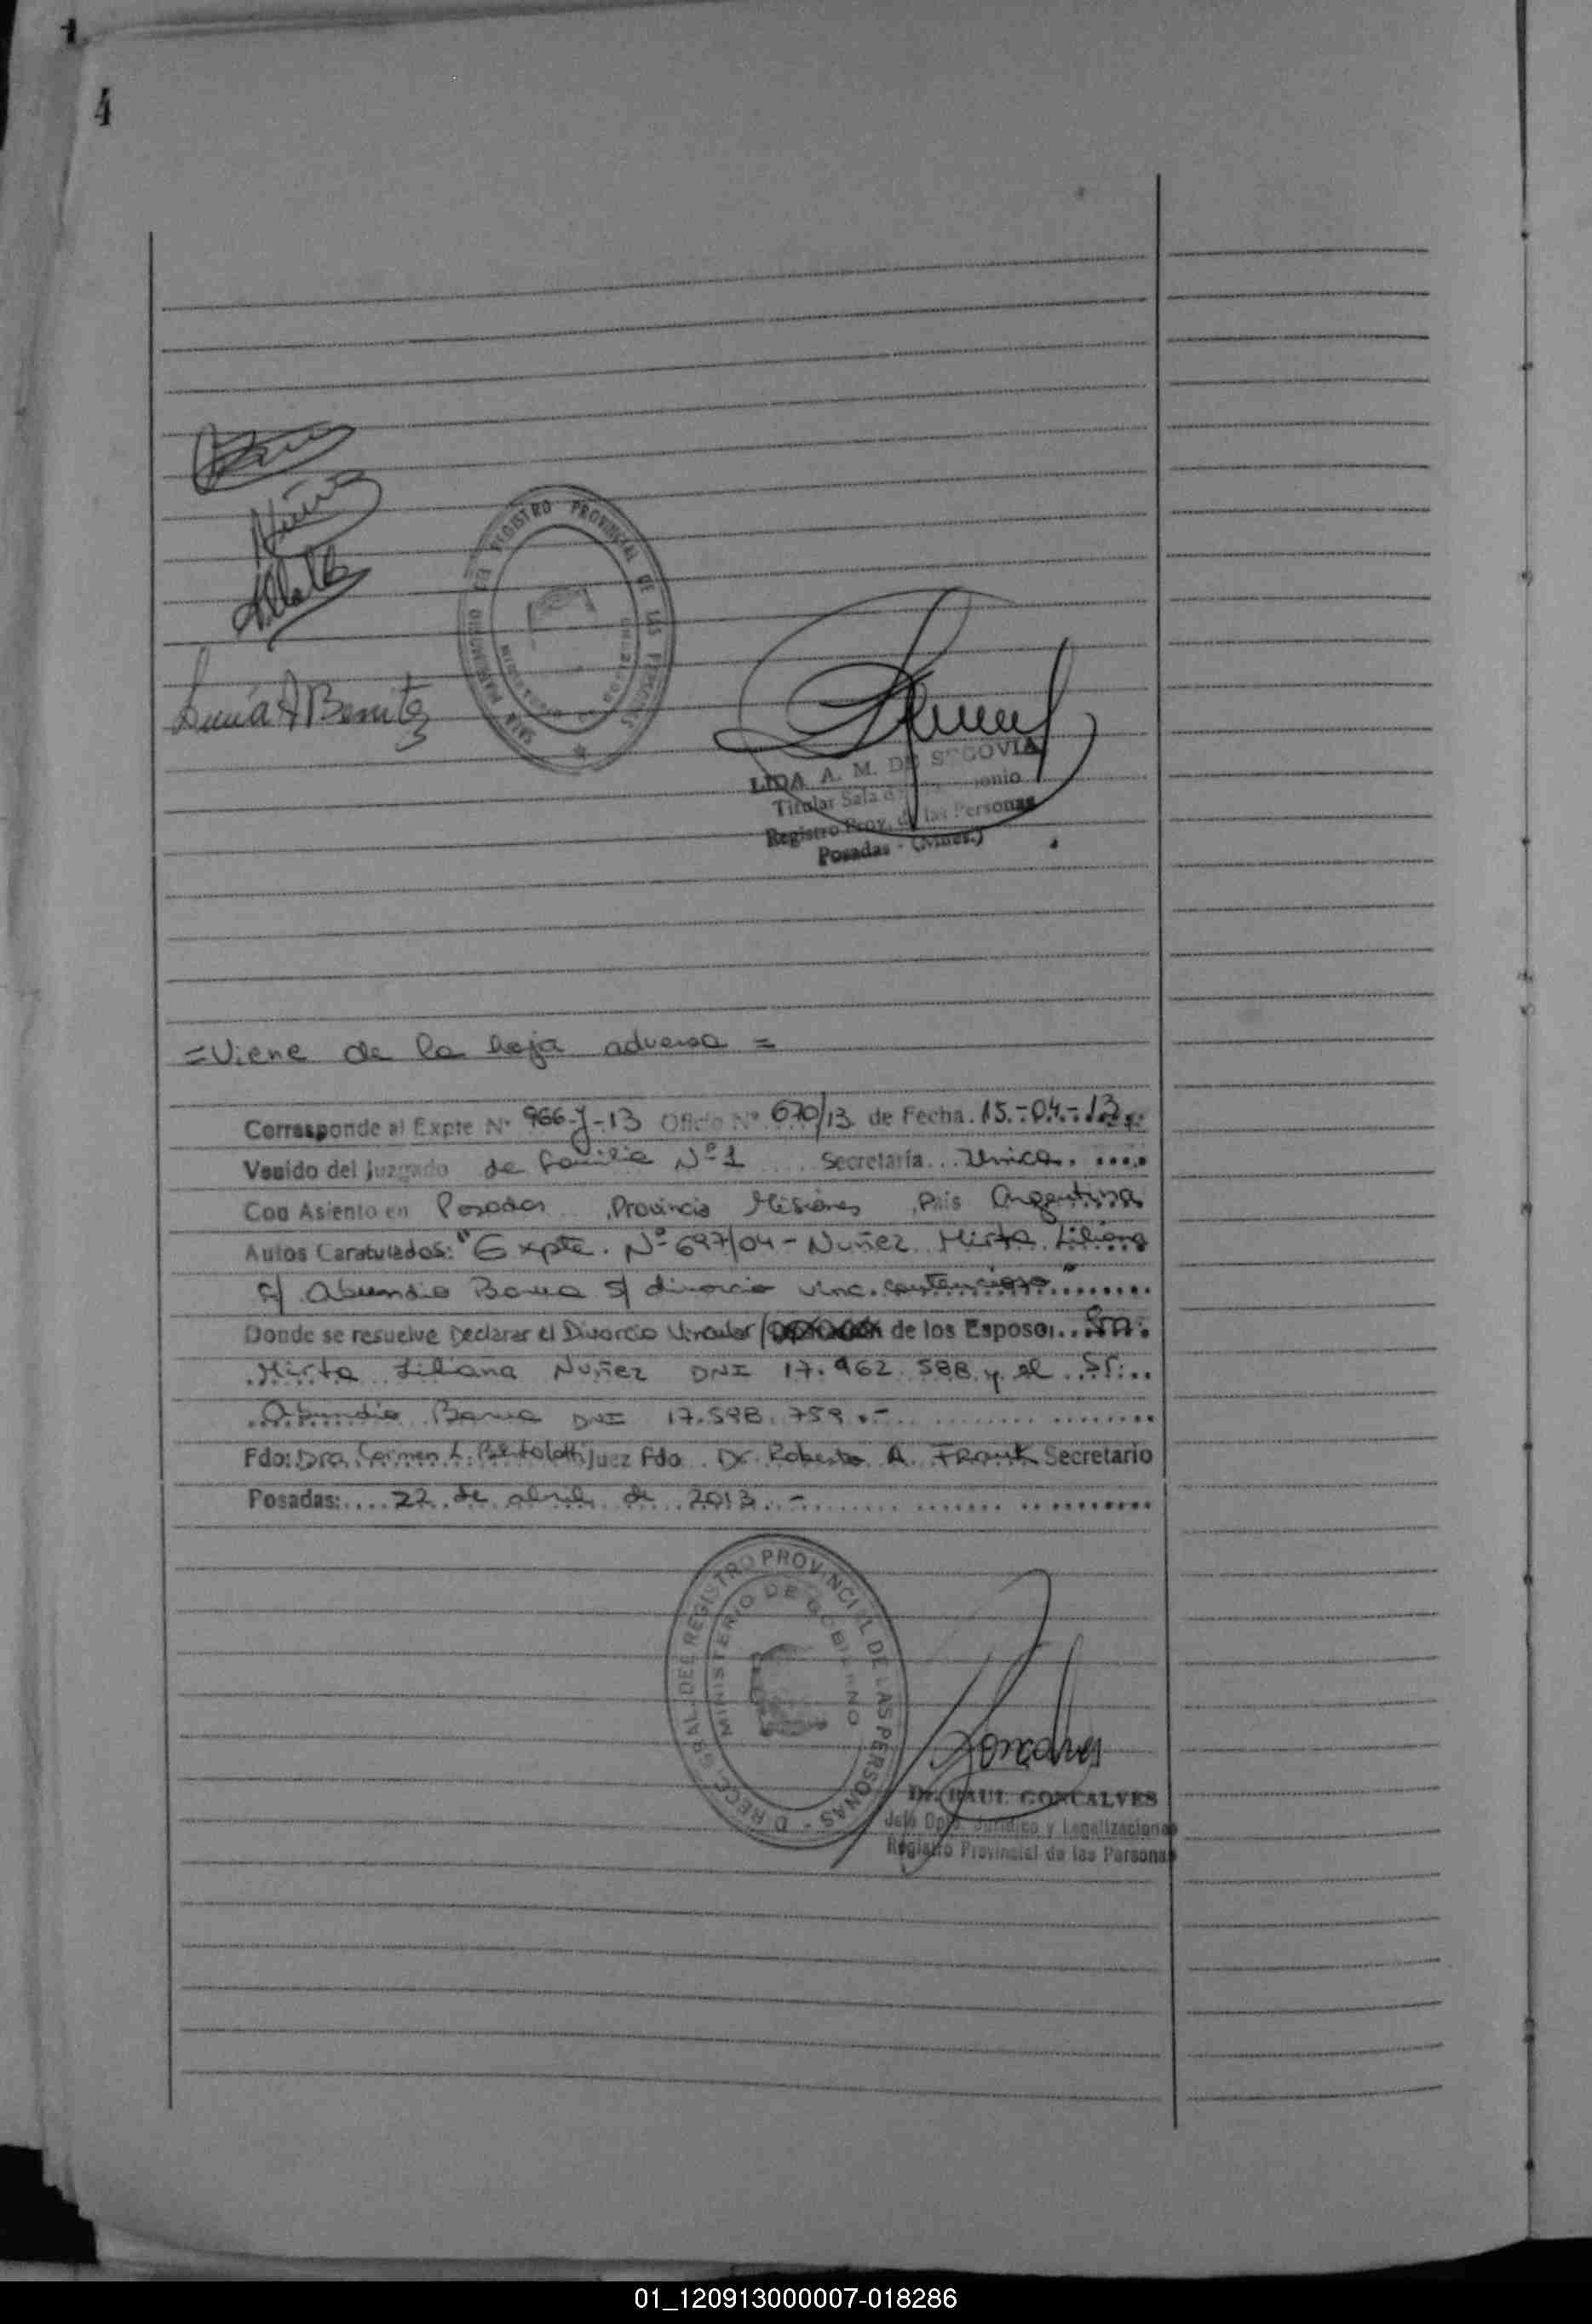 4
Nuñez
Lucía A Benitez
SALA MATRIMONIO DEL REGISTRO PROVINCIAL DE LAS PERSONAS
LIDA A. M. DE SEGOVIA
Titular Sala
Registro Prov. de las Personas
Posadas - (Mnes.)
= Viene de la hoja adversa =
Corresponde al Expte Nº 966-J-13 Oficio Nº 670/13 de Fecha 15.-04.-13
Venido del Juzgado de Familia Nº 1 Secretaría Unica.
Con Asiento en Posadas Provincia Misiones País Argentina
Autos Caratulados: "Expte. Nº 697/04 - Nuñez Mirta Liliana
c/ Abundio Barua s/ divorcio vinc. contencioso"
Donde se resuelve Declarar el Divorcio Vincular/ de los Esposos Sra.
Mirta Liliana Nuñez DNI 17.962.588 y el Sr.
Abundio Barua DNI 17.598.759.-
Fdo: Dra. Carmen L. Bertolotti Juez Fdo Dr. Roberto A. Frank Secretario
Posadas: 22 de abril de 2013.-
DIREC. GRAL. DEL REGISTRO PROVINCIAL DE LAS PERSONAS
MINISTERIO DE GOBIERNO
Dr. RAUL GONCALVES
Jefe Dpto. Jurídico y Legalizaciones
Registro Provincial de las Personas
01_120913000007-018286